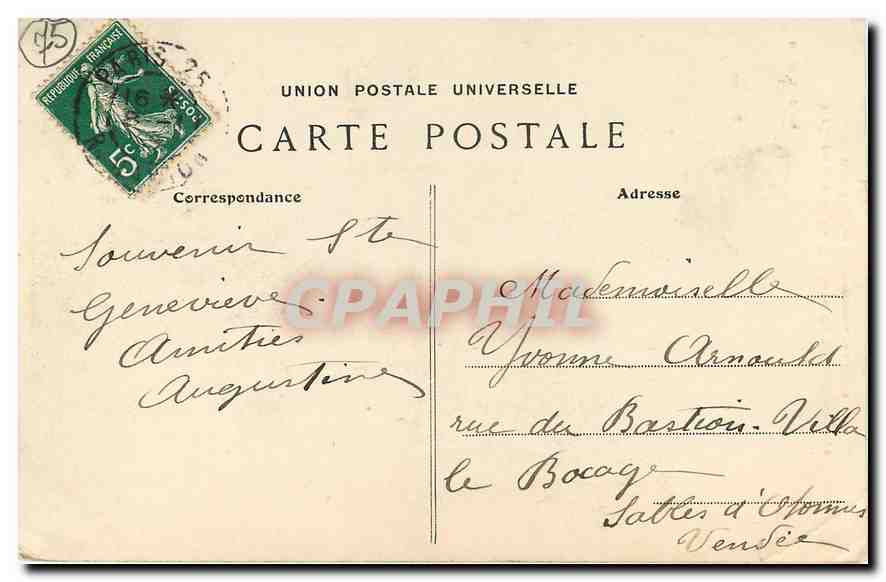 75
REPUBLIQUE FRANÇAISE
POSTES
5c
PARIS 25
16
UNION POSTALE UNIVERSELLE
CARTE POSTALE
Correspondance
Souvenir Ste
Geneviève.
Amitiés
Augustine
Adresse
Mademoiselle
Yvonne Arnould
rue du Bastion. Villa
le Bocage
Sables d'Olonnes
Vendée
CPAPHIL